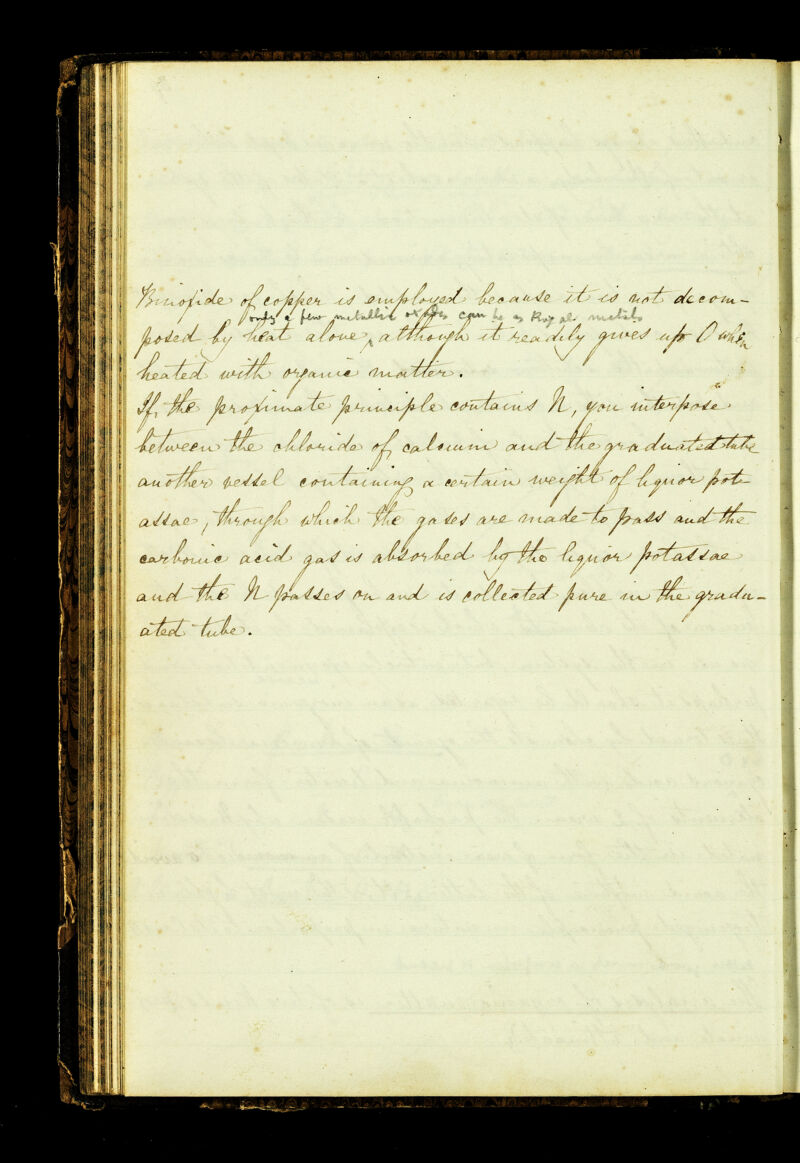 Binoxide of copper is employed because it is not decom-
only a few metallic oxides can be as Roy al metals
posed by heat alone, although it readily gives up O when
heated with organic matter.
If, the proximate principle contains N, you interpose
between the chloride of calcium and the graduated tube
another vessel containing a certain weight of liquor pot-
assae, through which the gases are made to pass and the
carbonic acid gas is absorbed by the liquor potassae
and the N passes on and is collected pure in the gradu-
ated tube.